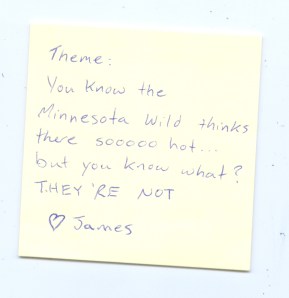 Theme:
You Know the
Minnesota Wild thinks
there sooooo hot...
but you know what?
THEY'RE NOT
♡ James